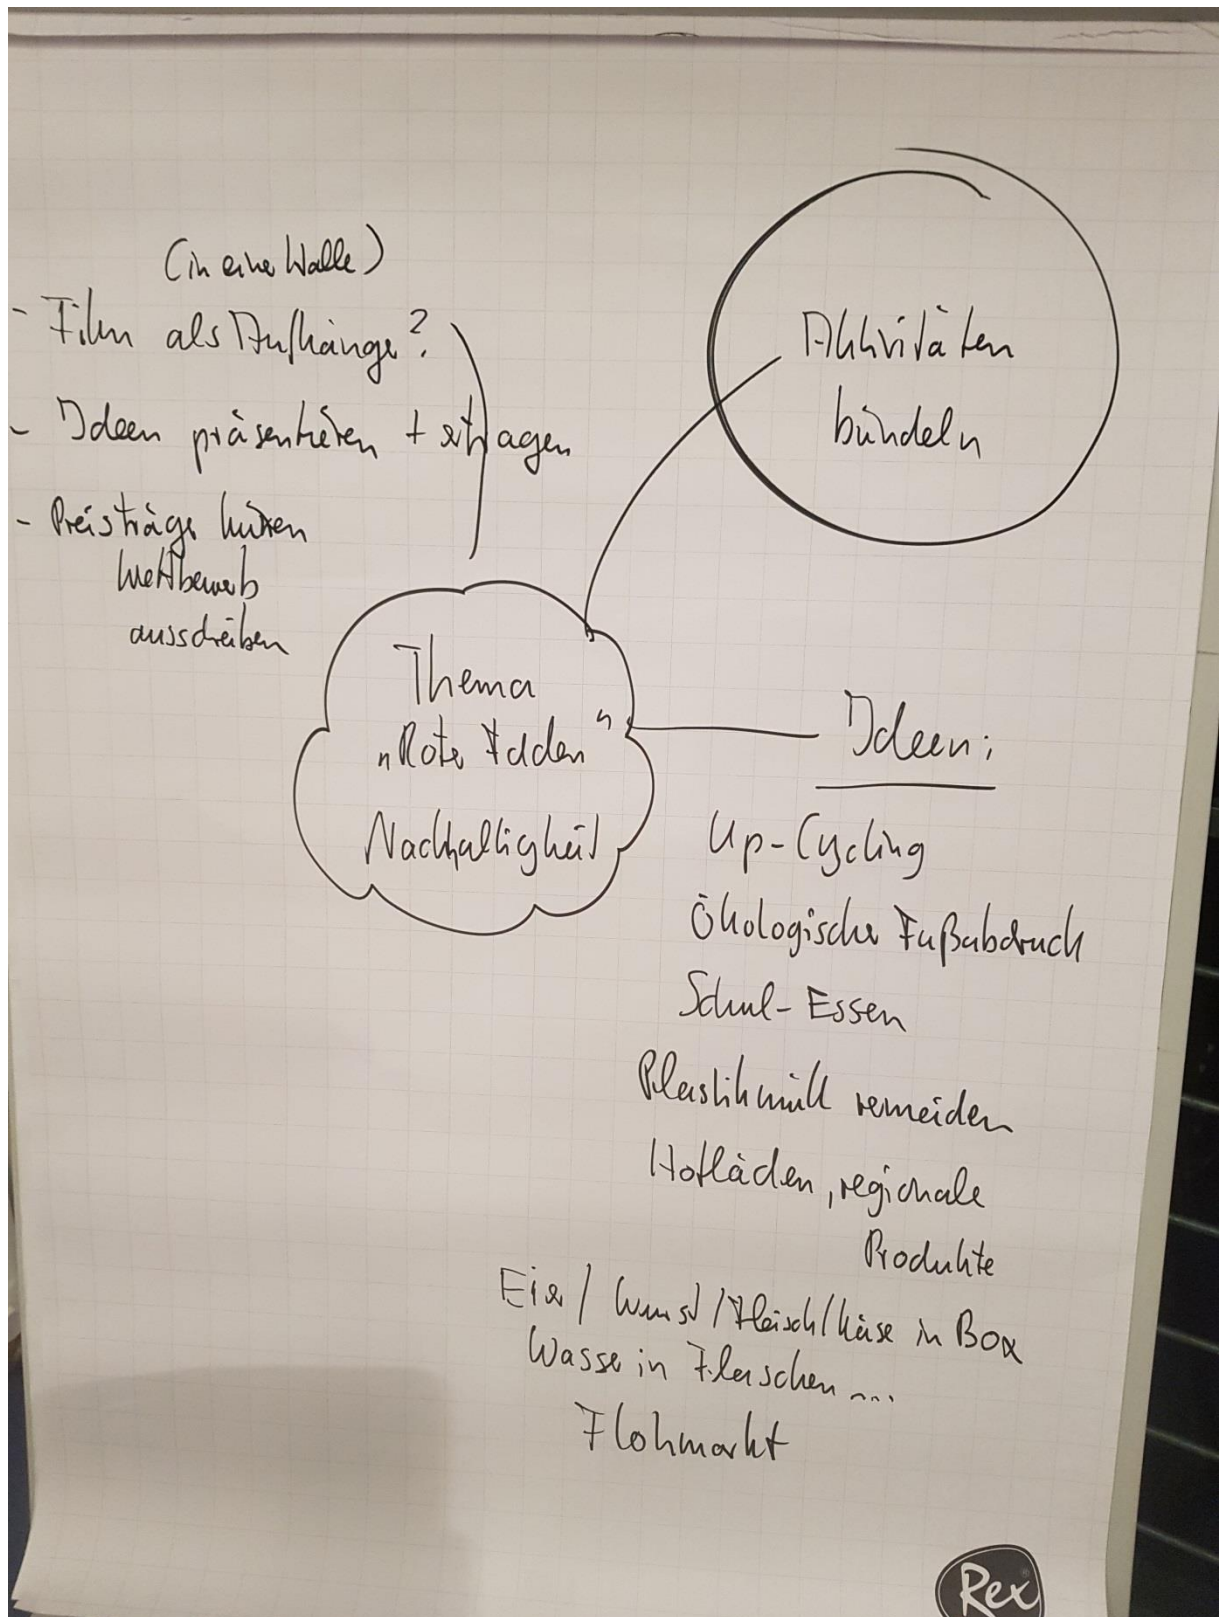 (in einer Halle)
- Film als Aufhänger?
- Ideen präsentieren + erfragen
- Preisträger küren
Wettbewerb
ausschreiben
Aktivitäten
bündeln
Thema
„Roter Faden"
Nachhaltigkeit
Ideen:
Up-Cycling
Ökologischer Fußabdruck
Schul-Essen
Plastikmüll vermeiden
Hofläden, regionale
Produkte
Eier / Wurst / Fleisch / Käse in Box
Wasser in Flaschen ....
Flohmarkt
Rex